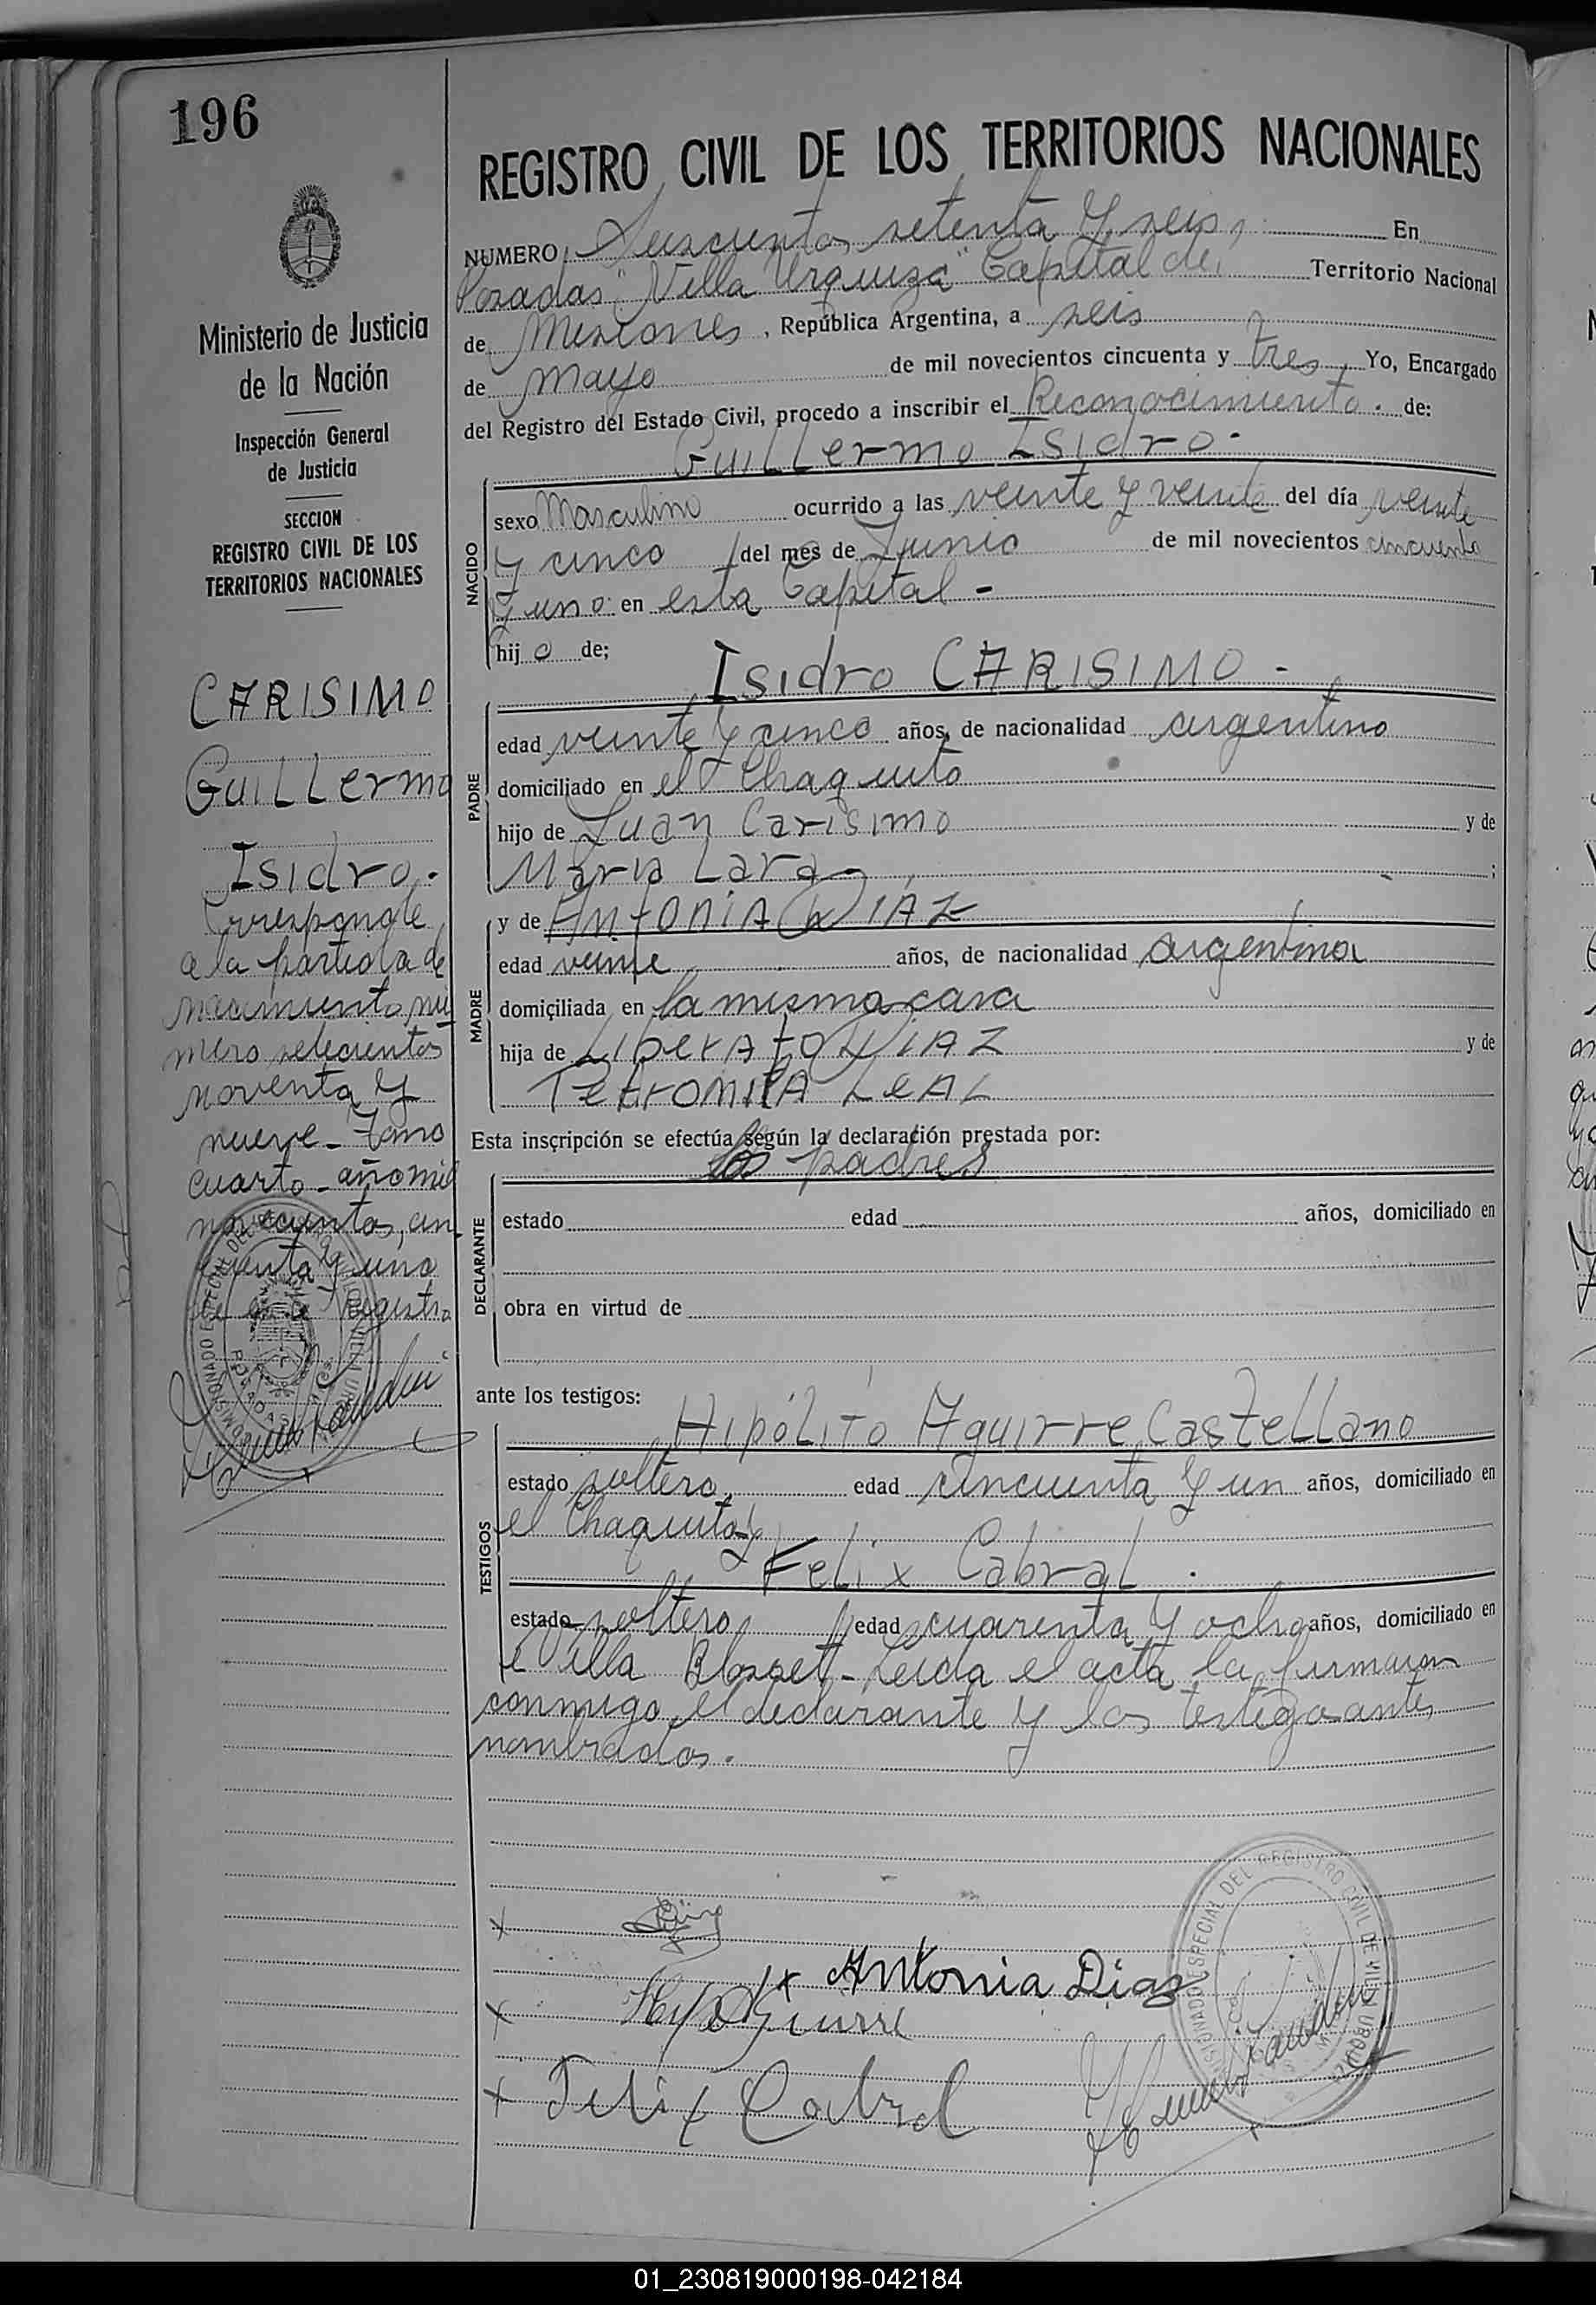 196
REGISTRO CIVIL DE LOS TERRITORIOS NACIONALES
Ministerio de Justicia
de la Nación
Inspección General
de Justicia
SECCION
REGISTRO CIVIL DE LOS
TERRITORIOS NACIONALES
CARISIMO
Guillermo
Isidro.
Corresponde
a la partida de
nacimiento nú
mero setecientos
noventa y
nueve - Tomo
cuarto - año mil
novecientos cin
cuenta y uno
de este Registro
NUMERO Seiscientos setenta y seis, En
Posadas "Villa Urquiza" Capital del Territorio Nacional
de Misiones, República Argentina, a seis
de mayo de mil novecientos cincuenta y tres, Yo, Encargado
del Registro del Estado Civil, procedo a inscribir el Reconocimiento. de:
Guillermo Isidro.-
NACIDO
sexo Masculino ocurrido a las veinte y veinte del día veinte
y cinco del mes de Junio de mil novecientos cincuenta
y uno en esta Capital -
hijo de;
Isidro CARISIMO -
PADRE
edad veinte y cinco años, de nacionalidad argentino
domiciliado en el Chaquito
hijo de Juan Carisimo y de
Maria Lara ;
MADRE
y de Antonia DIAZ
edad veinte años, de nacionalidad argentina
domiciliada en la misma casa
hija de Liberato DIAZ y de
Petronila LEAL
Esta inscripción se efectúa según la declaración prestada por:
los padres
DECLARANTE
estado edad años, domiciliado en
obra en virtud de
ante los testigos:
TESTIGOS
Hipólito Aguirre Castellano
estado soltero, edad cincuenta y un años, domiciliado en
el Chaquito y
Felix Cabral.
estado soltero edad cuarenta y ocho años, domiciliado en
Villa Blosset - Leida el acta la firmaron
conmigo, el declarante y los testigos antes
nombrados.
x
x Antonia Diaz
x Hip Aguirre
x Felix Cabral
01_230819000198-042184